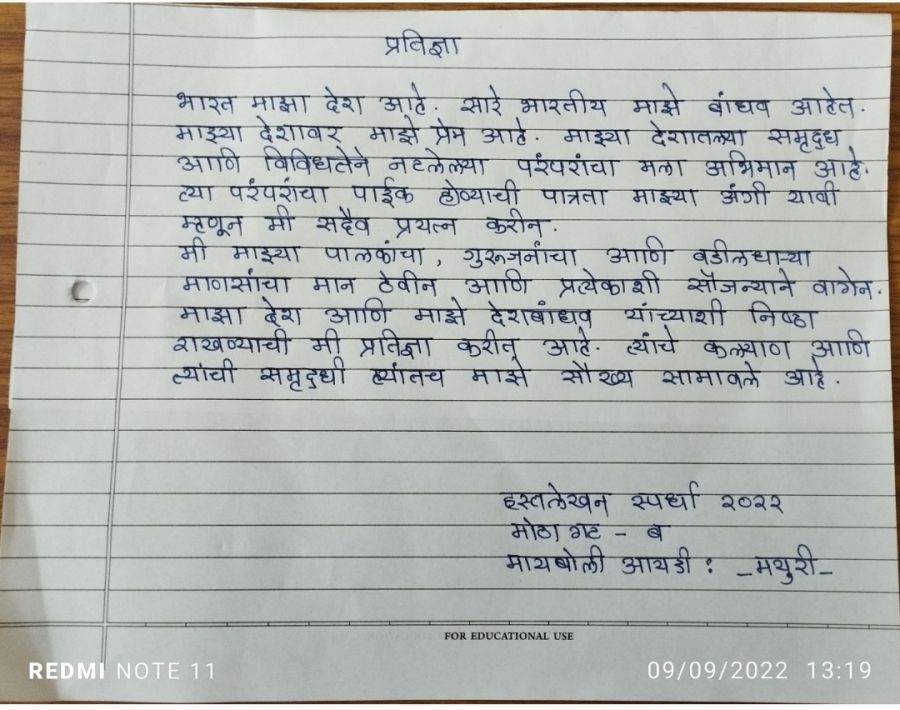 प्रतिज्ञा
भारत माझा देश आहे. सारे भारतीय माझे बांधव आहेत.
माझ्या देशावर माझे प्रेम आहे. माझ्या देशातल्या समृद्ध
आणि विविधतेने नटलेल्या परंपरांचा मला अभिमान आहे.
त्या परंपरांचा पाईक होण्याची पात्रता माझ्या अंगी यावी
म्हणून मी सदैव प्रयत्न करीन.
मी माझ्या पालकांचा, गुरुजनांचा आणि वडीलधाऱ्या
माणसांचा मान ठेवीन आणि प्रत्येकाशी सौजन्याने वागेन.
माझा देश आणि माझे देशबांधव यांच्याशी निष्ठा
राखण्याची मी प्रतिज्ञा करीत आहे. त्यांचे कल्याण आणि
त्यांची समृद्धी ह्यांतच माझे सौख्य सामावले आहे.
हस्तलेखन स्पर्धा २०२२
मोठा गट - ब
मायबोली आयडी : _मयुरी_
FOR EDUCATIONAL USE
REDMI NOTE 11
09/09/2022 13:19